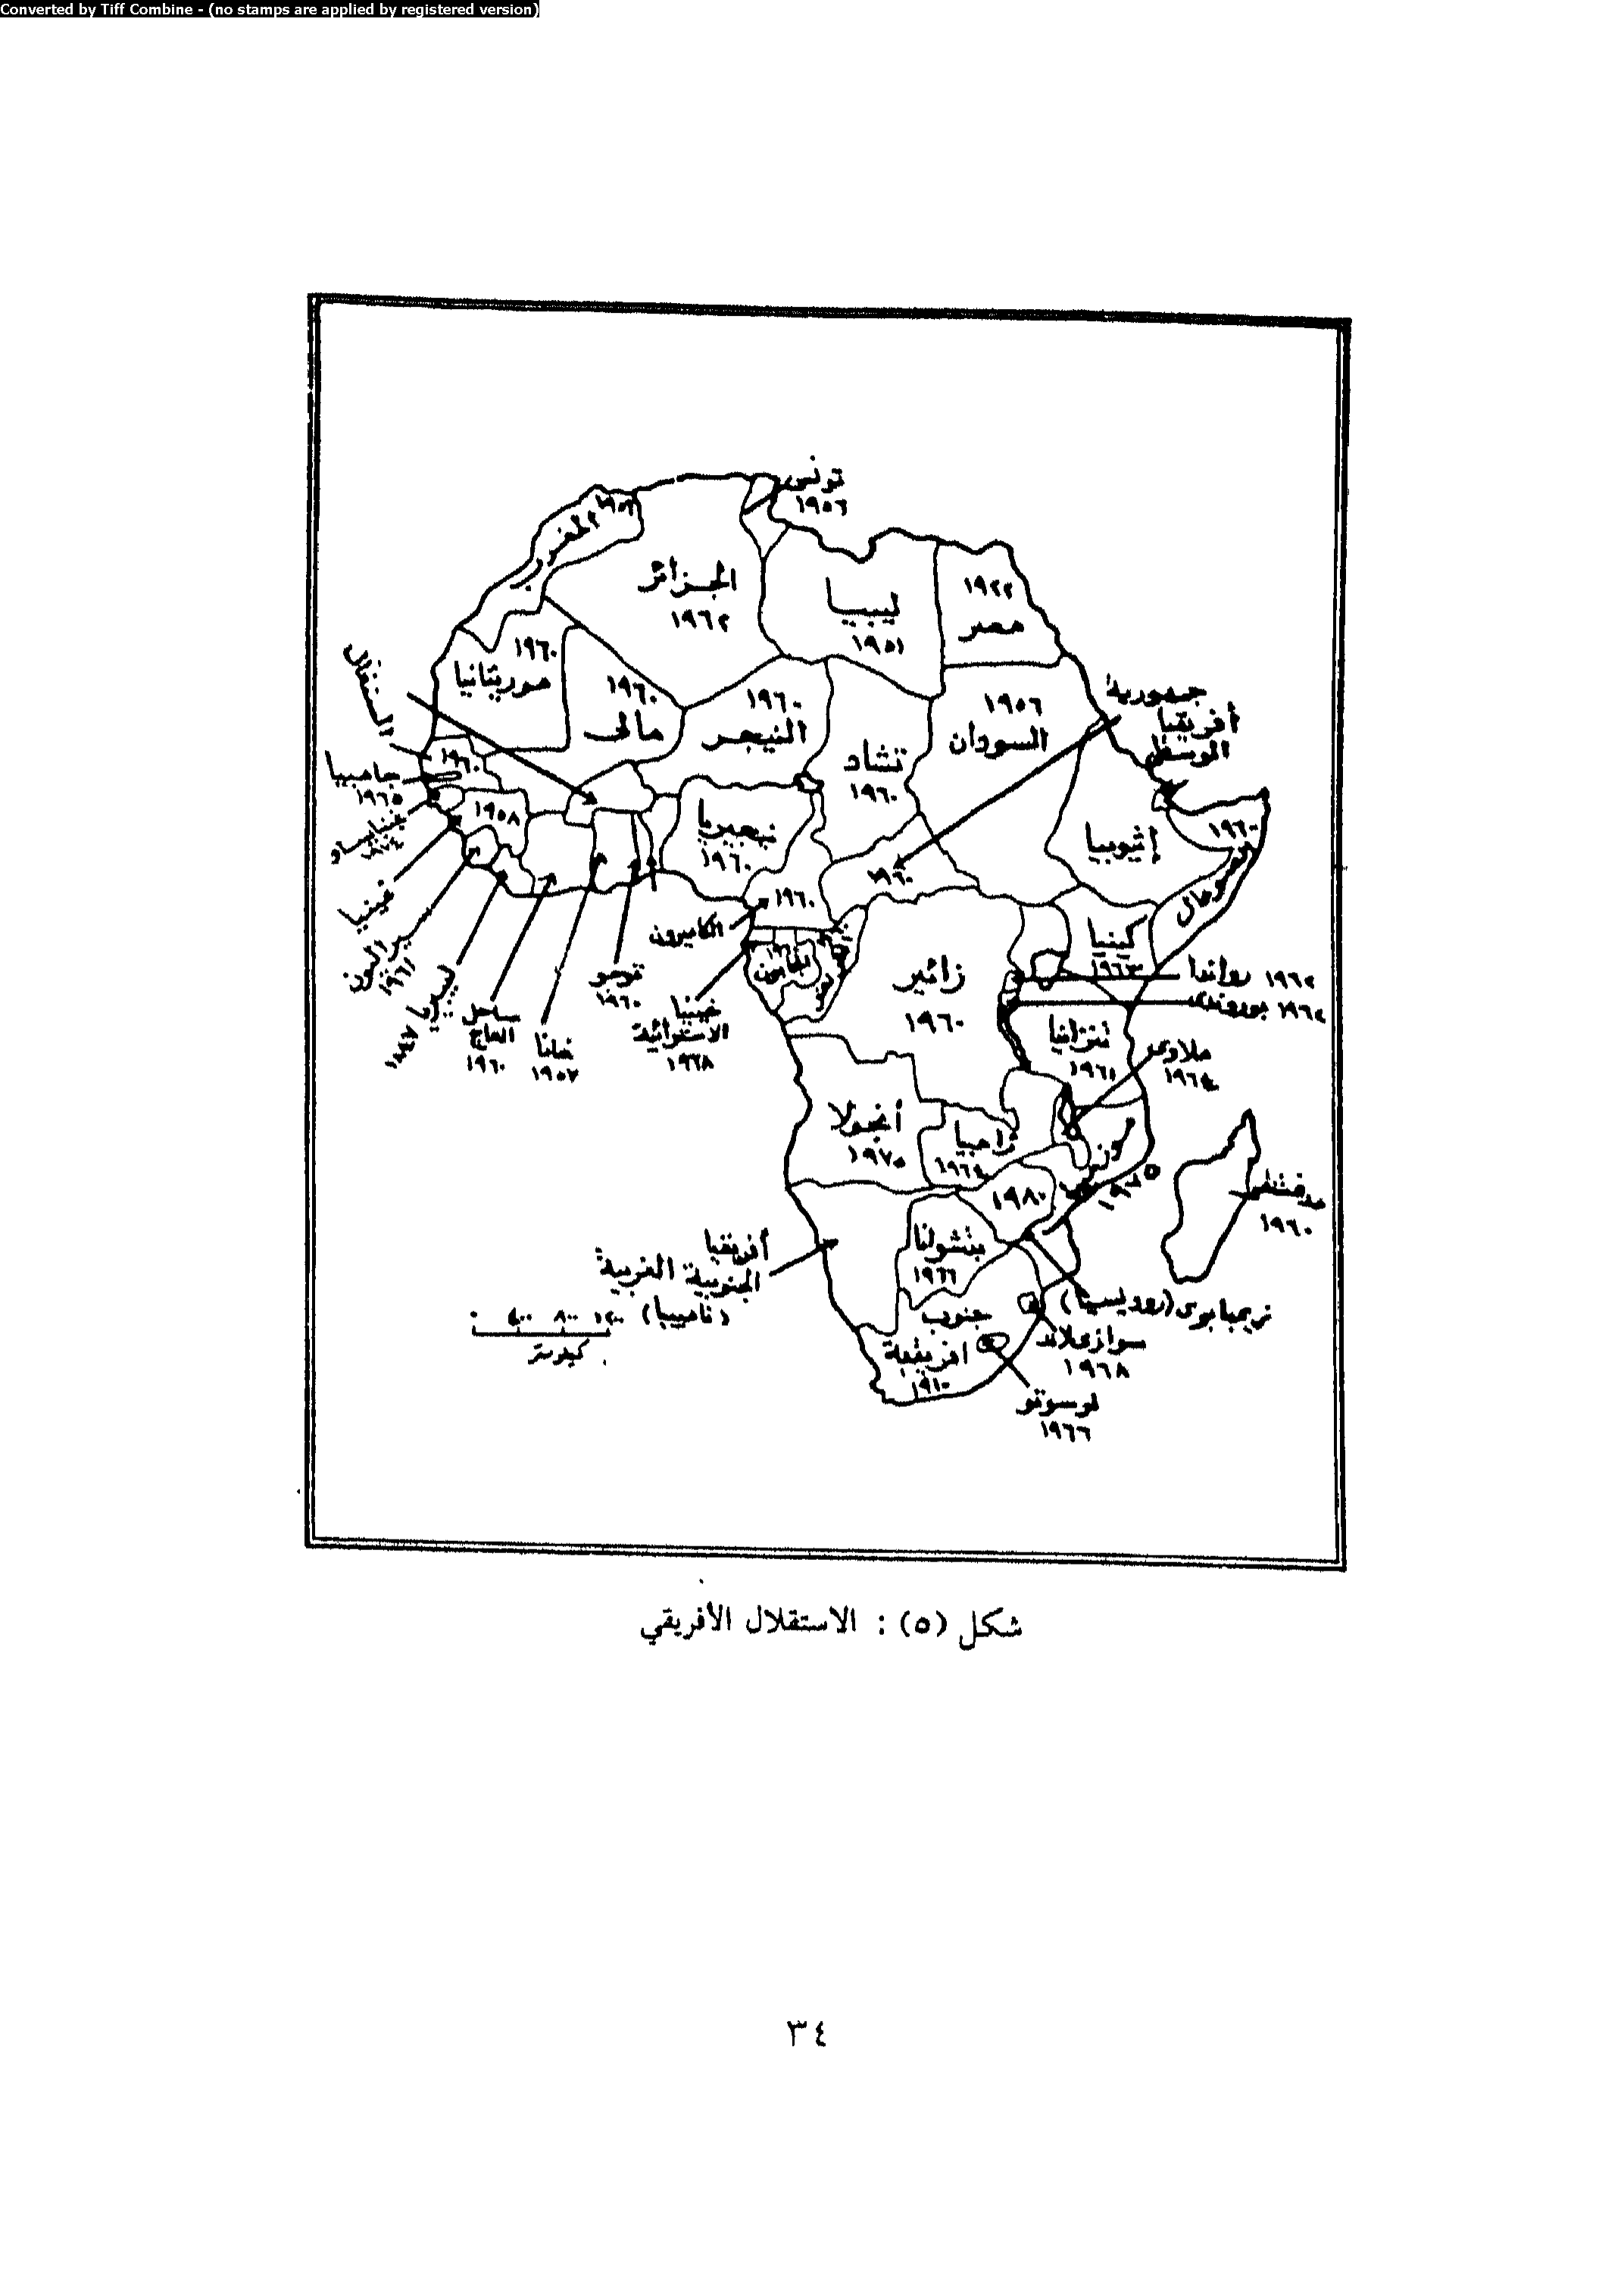 Converted by Tiff Combine - (no stamps are applied by registered version)
تونس
١٩٥٦
المغرب
١٩٥٦
الجزائر
١٩٦٢
ليبيا
١٩٥١
١٩٢٢
مصر
١٩٦٠
موريتانيا
١٩٦٠
مالى
١٩٦٠
النيجر
تشاد
١٩٦٠
١٩٥٦
السودان
جمهورية
أفريقيا
الوسطى
١٩٦٠
السنغال
١٩٦٠
جامبيا
١٩٦٥
غينيا
١٩٥٨
نيجيريا
١٩٦٠
إثيوبيا
١٩٦٠
الصومال
سيراليون
١٩٦١
ليبيريا
١٨٤٧
ساحل
العاج
١٩٦٠
غانا
١٩٥٧
توجو
١٩٦٠
الكاميرون
١٩٦٠
غينيا
الاستوائية
١٩٦٨
الجابون
زائير
١٩٦٠
كينيا
١٩٦٣
رواندا ١٩٦٢
بوروندى ١٩٦٢
تنزانيا
١٩٦١
ملاوى
١٩٦٤
أنجولا
١٩٧٥
زامبيا
١٩٦٤
١٩٨٠
مدغشقر
١٩٦٠
أفريقيا
الجنوبية الغربية
(ناميبيا)
بتشوانا
١٩٦٦
زيمبابوى (روديسيا)
جنوب
افريقية
١٩١٠
سوازيلاند
١٩٦٨
لوسوتو
١٩٦٦
٠ ٤٠٠ ٨٠٠ ١٢٠٠
كيلومتر
شكل (٥) : الاستقلال الأفريقي
٣٤